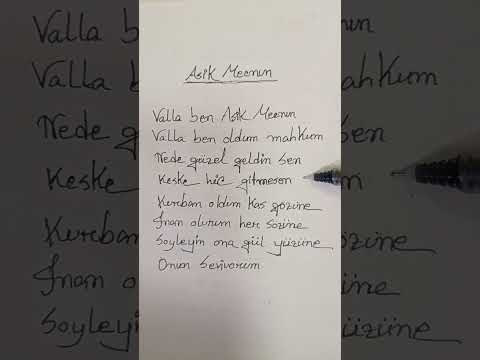 Asik Mecnun
Valla ben Asik Mecnun
Valla ben oldum mahkum
Nede güzel geldin sen
Keske hiç gitmesen
Kurban oldum Kas gözüne
Inan olurum her sözüne
Soyleyin ona gül yüzüne
Onun seviyorum